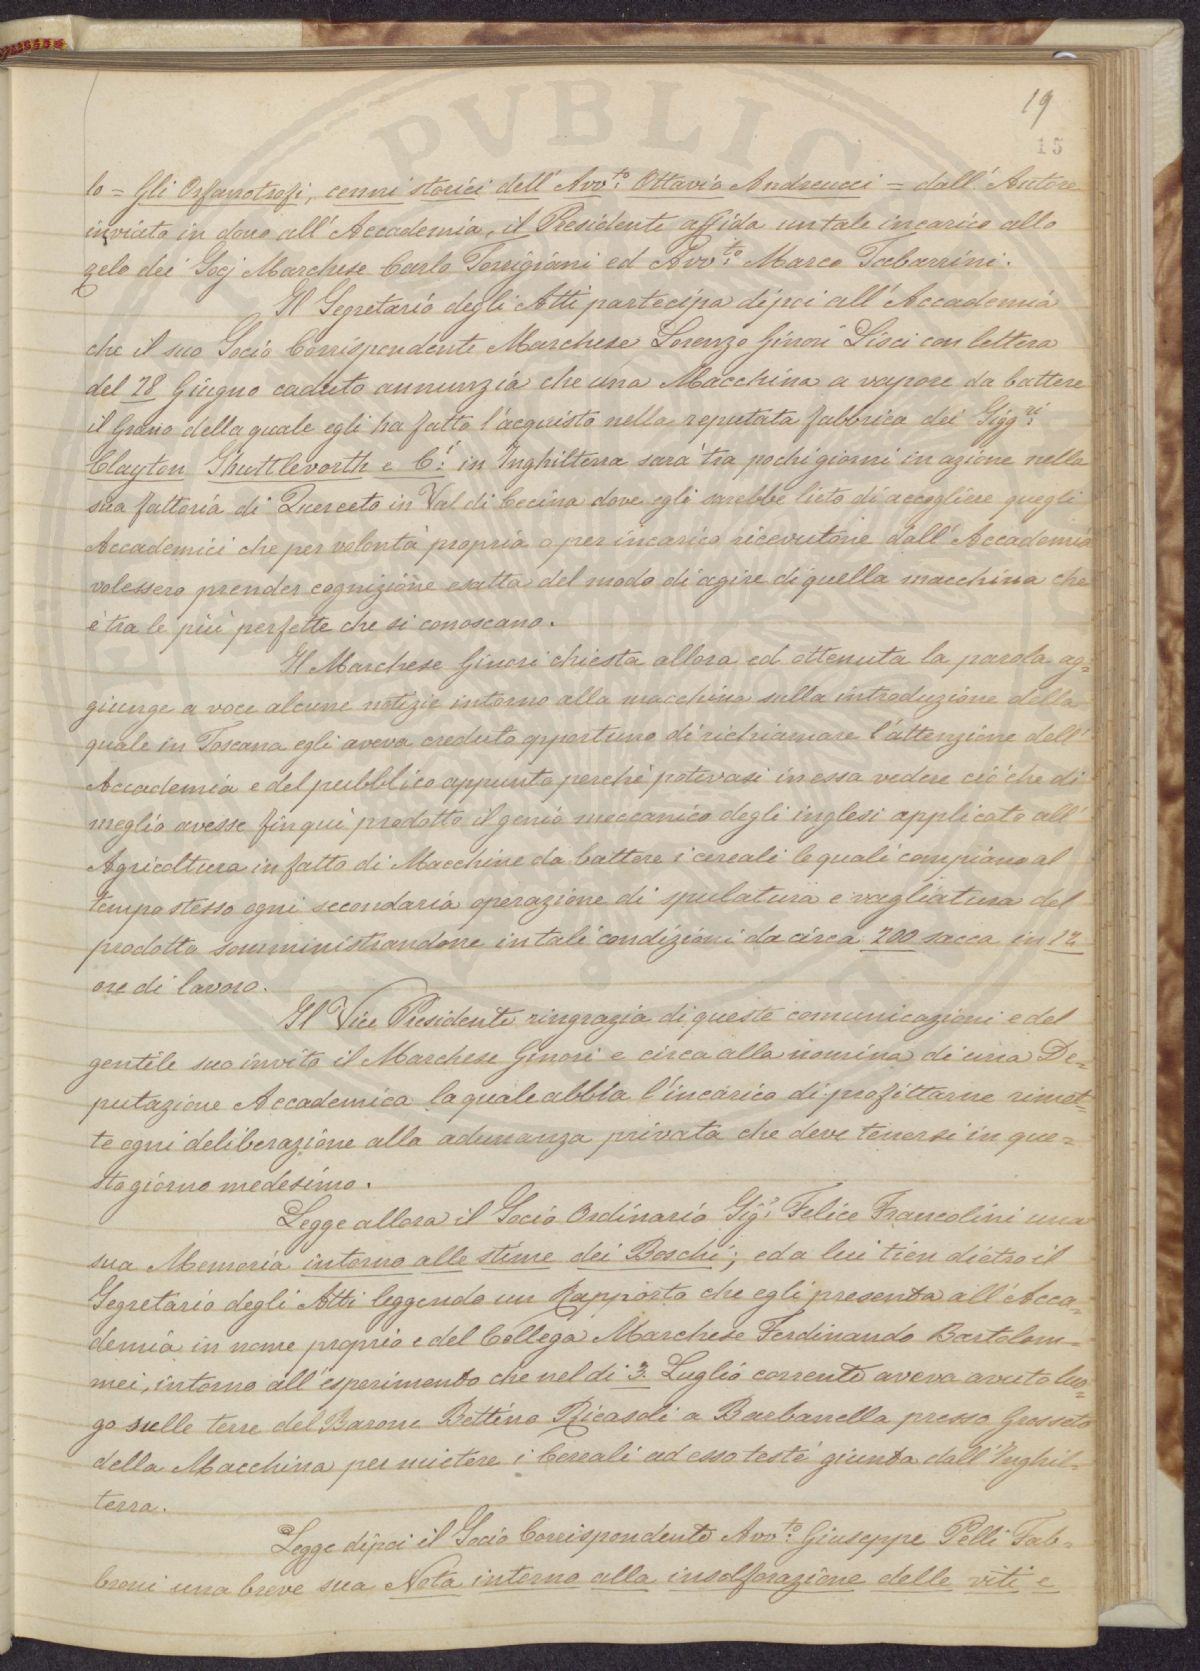 19
15
lo = Gli Orfanotrofi, cenni storici dell' Avv.to Ottavio Andreucci = dall' Autore
inviato in dono all' Accademia, il Presidente affida un tale incarico allo
zelo dei Socj Marchese Carlo Torrigiani ed Avv.to Marco Tabarrini.
Il Segretario degli Atti partecipa dipoi all' Accademia
che il suo Socio Corrispondente Marchese Lorenzo Ginori Lisci con lettera
del 28 Giugno caduto annunzia che una Macchina a vapore da battere
il Grano della quale egli ha fatto l'acquisto nella reputata fabbrica dei Sigg.ri
Clayton Shuttlevorth e C.i in Inghilterra sarà tra pochi giorni in azione nella
sua fattoria di Querceto in Val di Cecina dove egli sarebbe lieto di accogliere quegli
Accademici che per volontà propria o per incarico ricevutone dall' Accademia
volessero prender cognizione esatta del modo di agire di quella macchina che
è tra le più perfette che si conoscano.
Il Marchese Ginori chiesta allora ed ottenuta la parola ag=
giunge a voce alcune notizie intorno alla macchina sulla introduzione della
quale in Toscana egli aveva creduto opportuno di richiamare l'attenzione dell'
Accademia e del pubblico appunto perchè potevasi in essa vedere ciò che di
meglio avesse fin qui prodotto il genio meccanico degli inglesi applicato all'
Agricoltura in fatto di Macchine da battere i cereali le quali compiano al
tempo stesso ogni secondaria operazione di spulatura e vagliatura del
prodotto somministrandone in tali condizioni da circa 200 sacca in 12
ore di lavoro.
Il Vice Presidente ringrazia di queste comunicazioni e del
gentile suo invito il Marchese Ginori e circa alla nomina di una De=
putazione Accademica la quale abbia l'incarico di profittarne rimet=
te ogni deliberazione alla adunanza privata che deve tenersi in que=
sto giorno medesimo.
Legge allora il Socio Ordinario Sig.r Felice Francolini una
sua Memoria intorno alle stime dei Boschi; ed a lui tien dietro il
Segretario degli Atti leggendo un Rapporto che egli presenta all' Acca=
demia in nome proprio e del Collega Marchese Ferdinando Bartolom=
mei, intorno all' esperimento che nel di 3. Luglio corrente aveva avuto luo=
go sulle terre del Barone Bettino Ricasoli a Barbanella presso Grosseto
della Macchina per mietere i Cereali ad esso testè giunta dall' Inghil=
terra.
Legge dipoi il Socio Corrispondente Avv.to Giuseppe Pelli Fab=
broni una breve sua Nota intorno alla insolforazione delle viti e